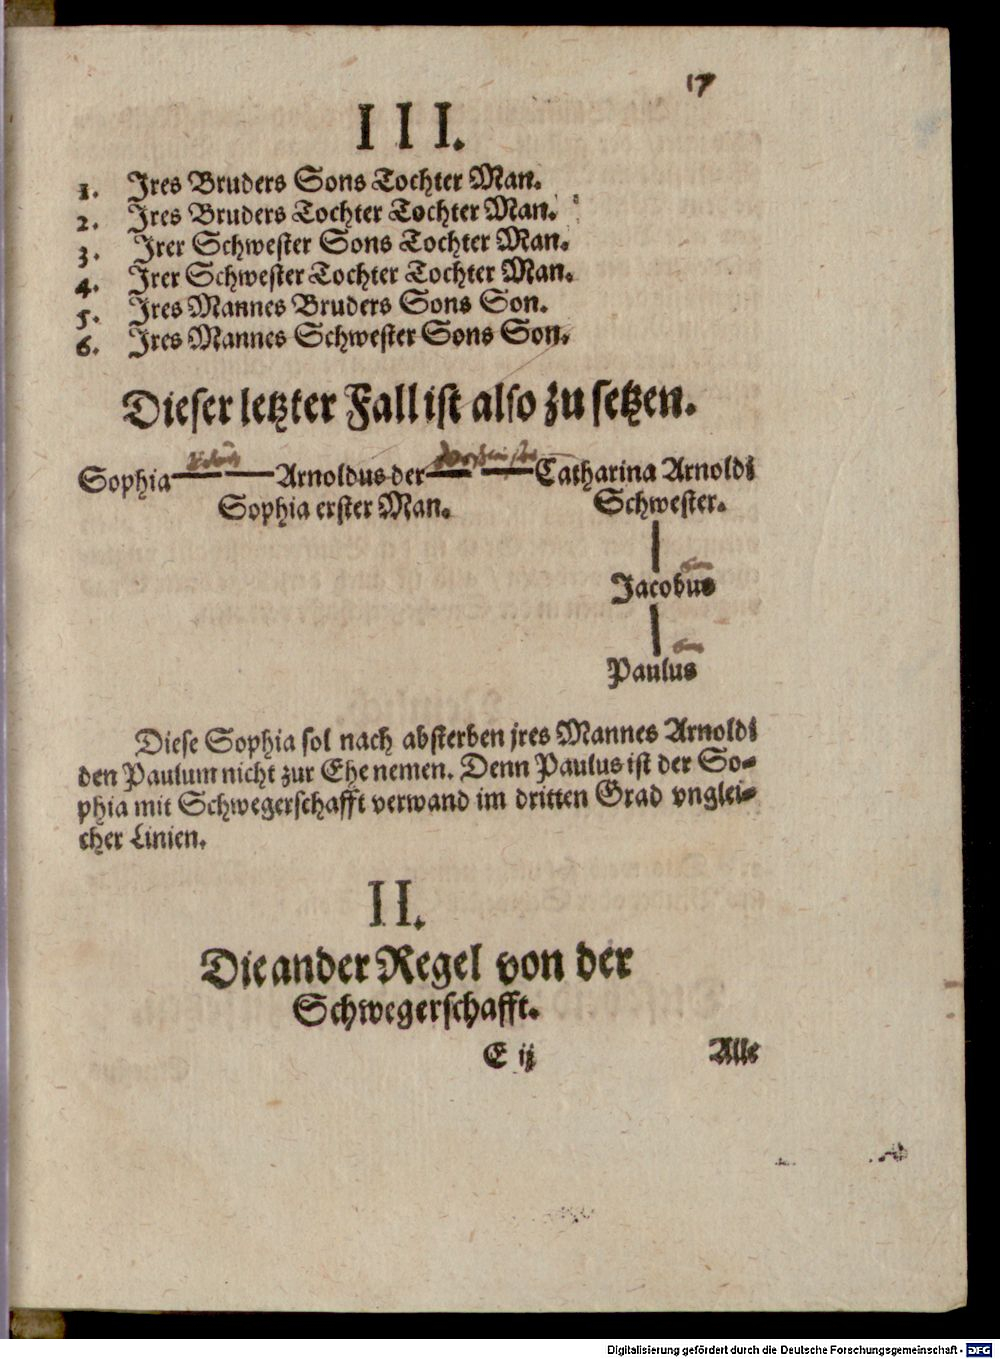 17
III.
1. Jres Bruders Sons Tochter Man.
2. Jres Bruders Tochter Tochter Man.
3. Jrer Schwester Sons Tochter Man.
4. Jrer Schwester Tochter Tochter Man.
5. Jres Mannes Bruders Sons Son.
6. Jres Mannes Schwester Sons Son.
Dieser letzter Fall ist also zu setzen.
Sophia Arnoldus der Catharina Arnoldi
Sophia erster Man. Schwester.
Jacobus
Paulus
Diese Sophia sol nach absterben jres Mannes Arnoldi
den Paulum nicht zur Ehe nemen. Denn Paulus ist der So-
phia mit Schwegerschafft verwand im dritten Grad vnglei-
cher Linien.
II.
Die ander Regel von der
Schwegerschafft.
E ij Alle
Digitalisierung gefördert durch die Deutsche Forschungsgemeinschaft - DFG